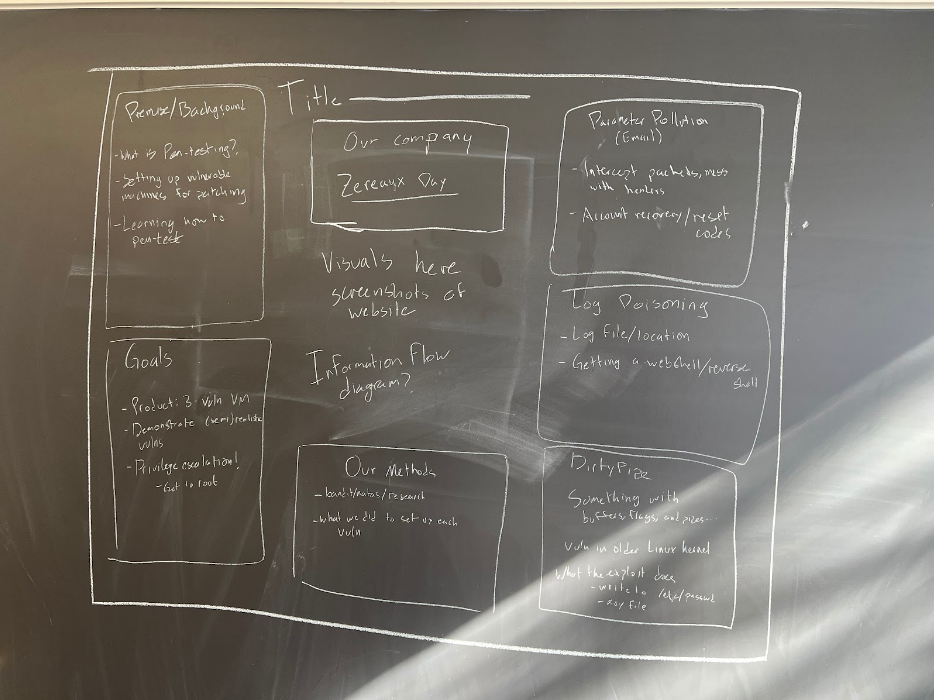 Title
Premise/Background
- What is Pen-testing?
- Setting up vulnerable
machines for patching
- Learning how to
pen-test
Goals
- Product: 3 vuln VM
- Demonstrate (semi)realistic
vulns
- Privilege escalation!
- Get to root
Our company
Zereaux Day
Visuals here
screenshots of
website
Information flow
diagram?
Our Methods
- bandit/natas/research
- What we did to set up each
vuln
Parameter Pollution
(Email)
- Intercept packets, mess
with headers
- Account recovery/reset
codes
Log Poisoning
- Log file/location
- Getting a webshell/reverse
shell
DirtyPipe
Something with
buffers, flags, and pipes...
vuln in older Linux kernel
What the exploit does
- write to /etc/passwd
- any file